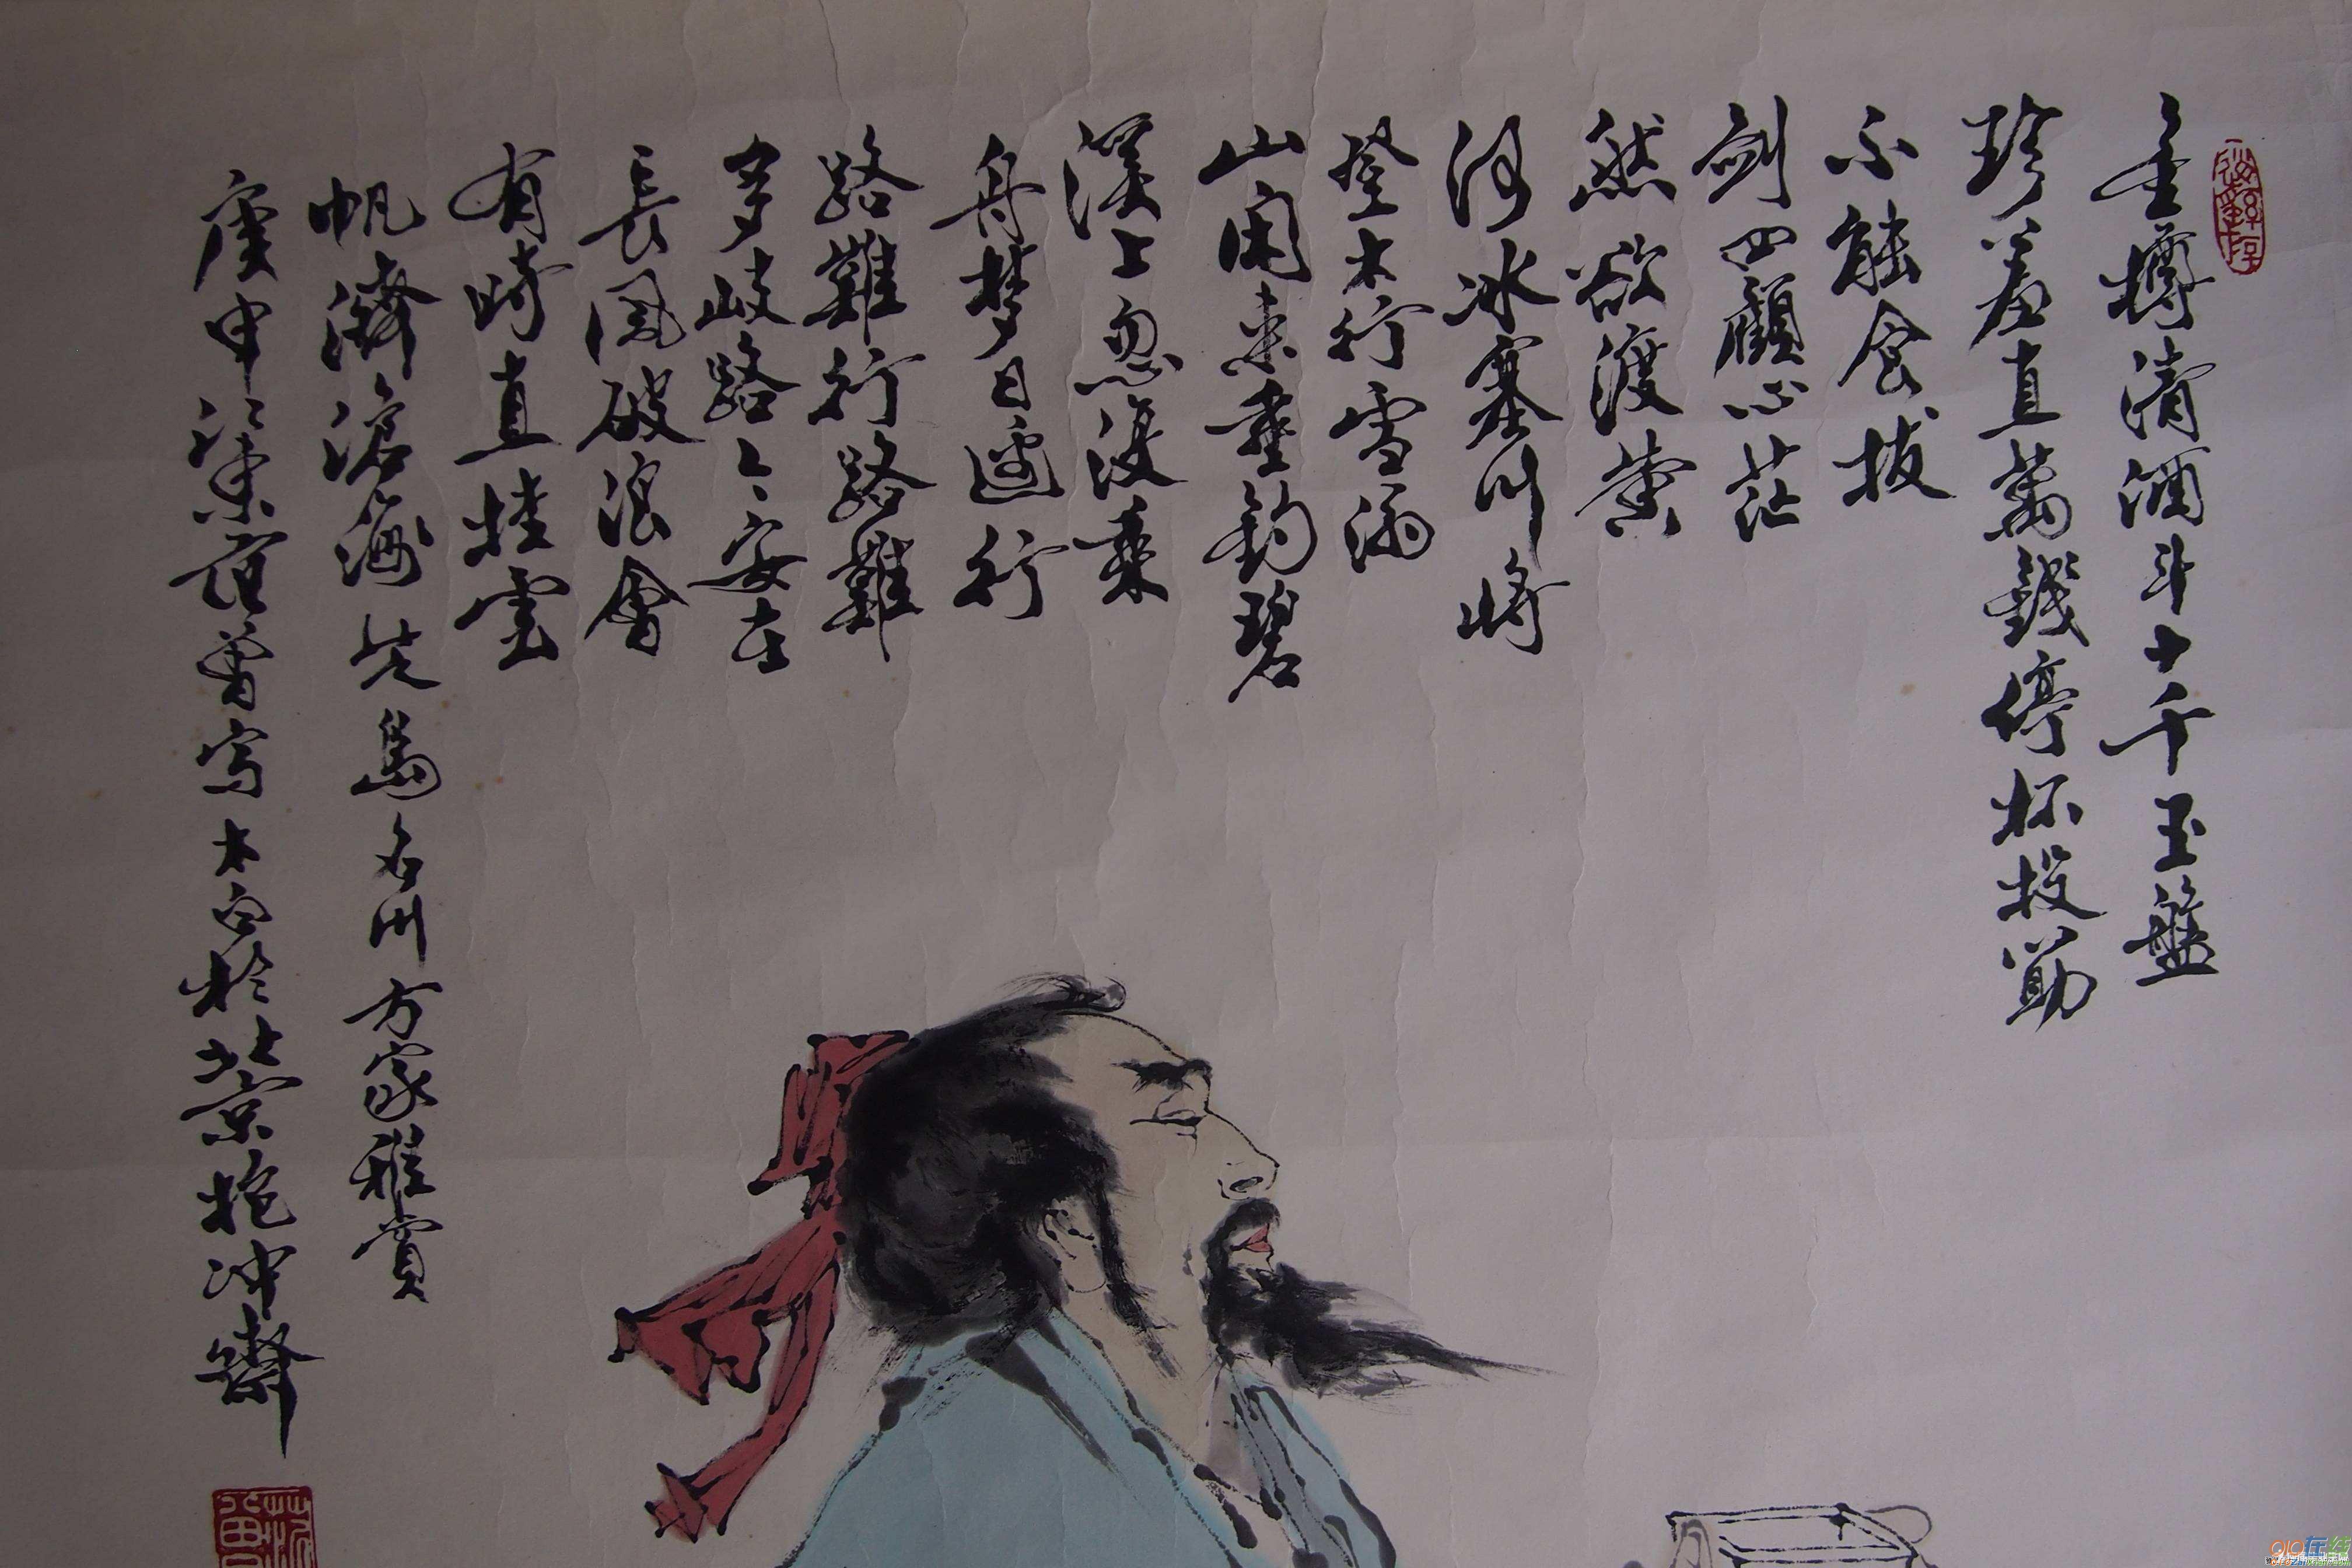 金樽清酒斗十千玉盤
珍羞直萬錢停杯投筯
不能食拔
劍四顧心茫
然欲渡黄
河冰塞川將
登太行雪滿
山閑来垂釣碧
溪上忽復乘
舟梦日邊行
路難行路難
多岐路々安在
長風破浪會
有時直挂雲
帆濟滄海 為名川方家雅賞
庚申江東范曾寫太白於北京抱冲齋